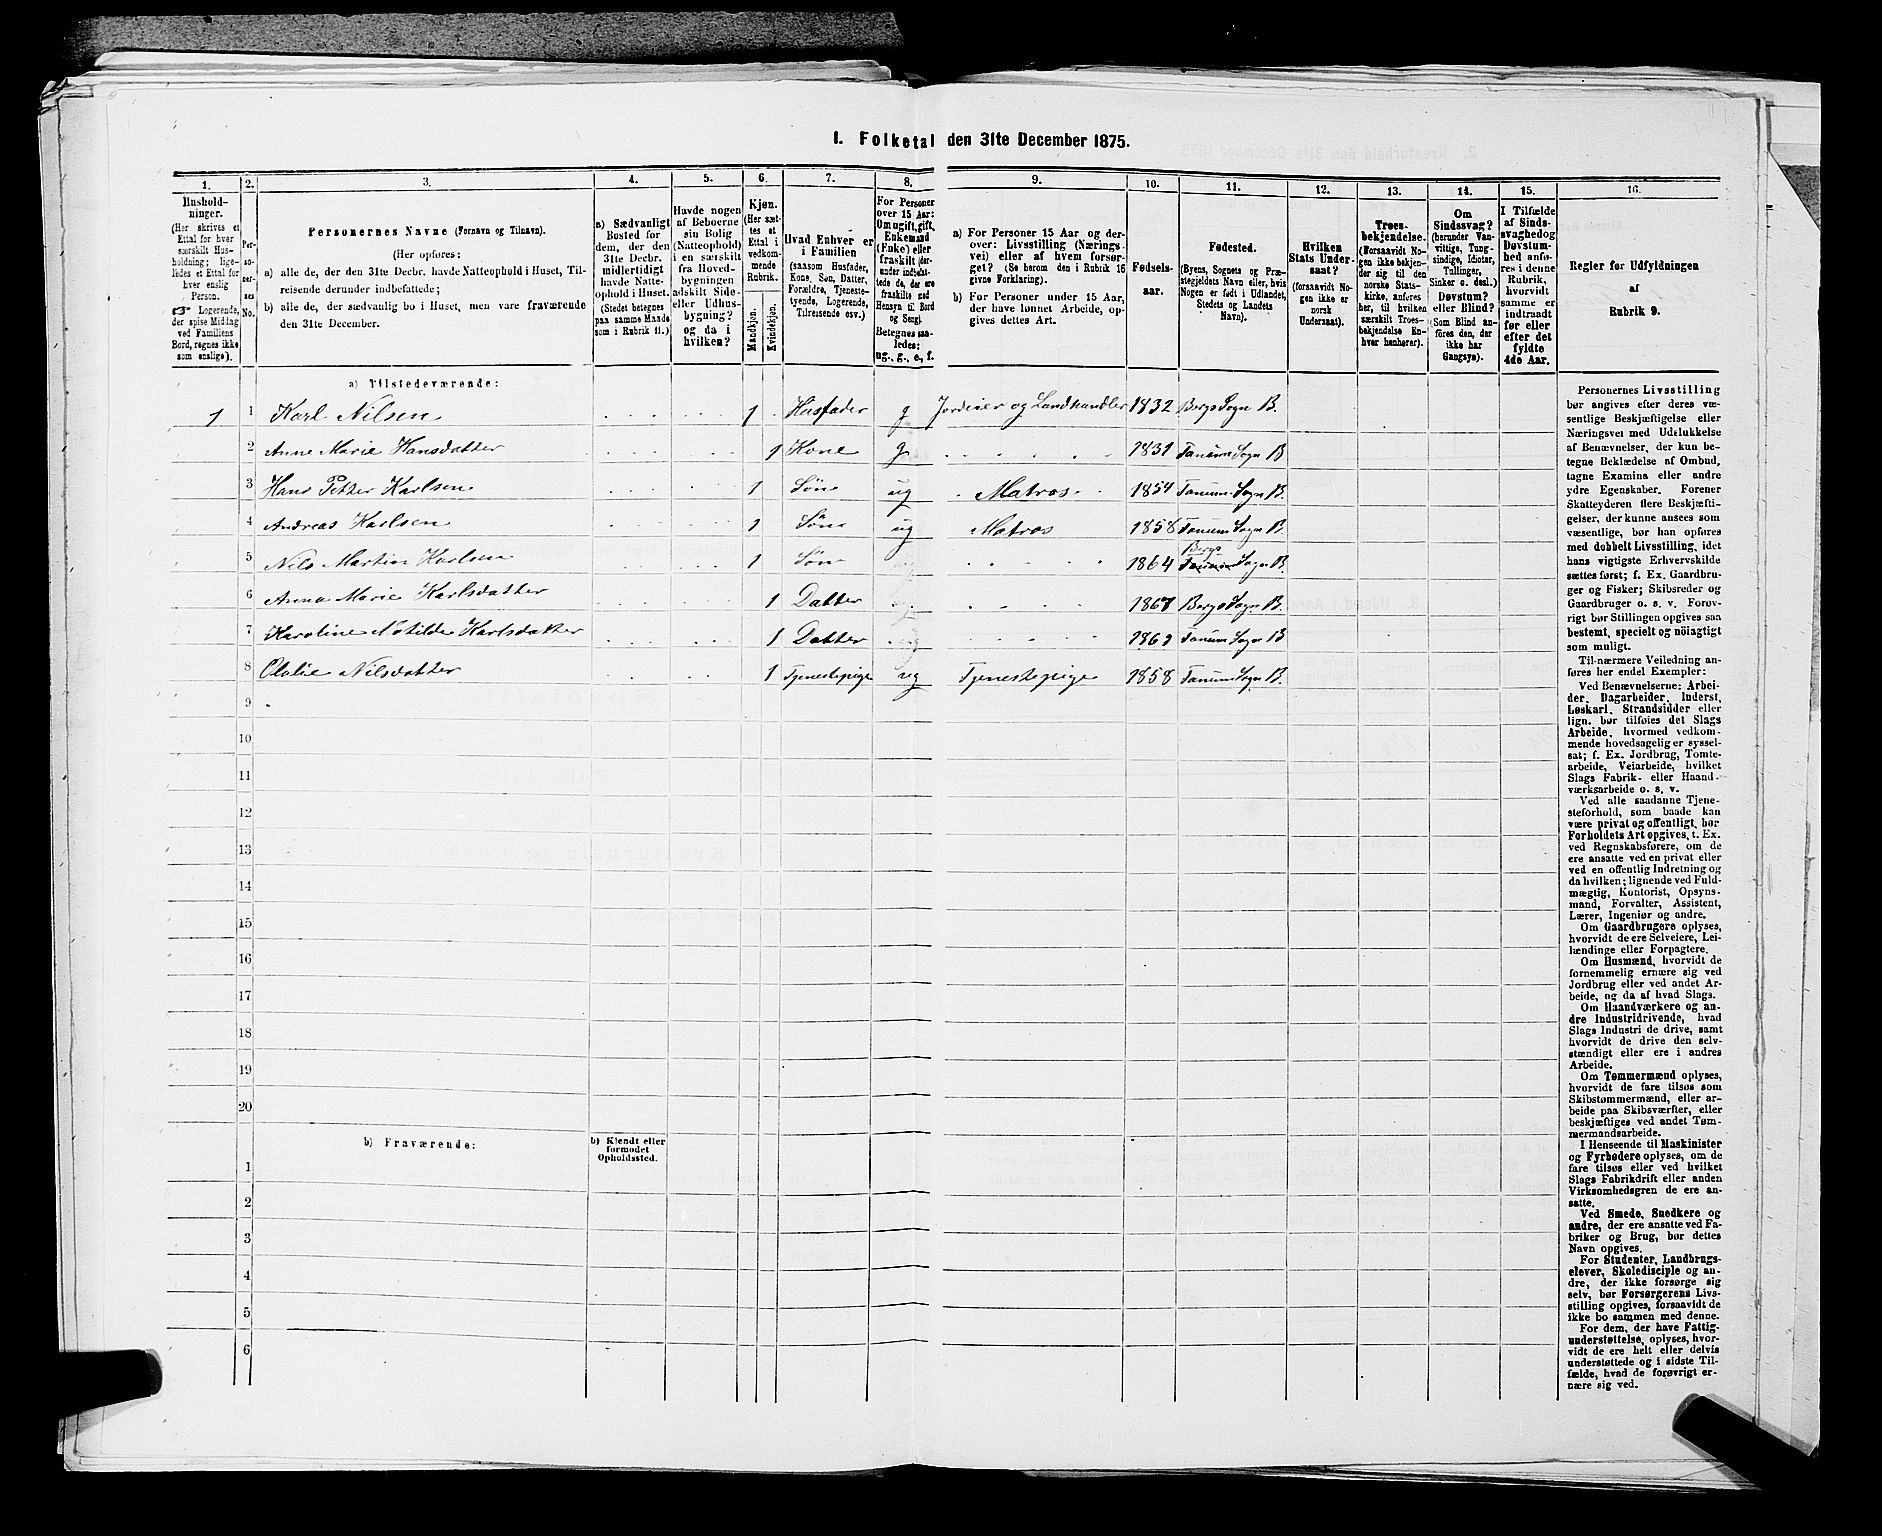 1. Folketal den 31te December 1875.
1. 2. 3. 4. 5. 6. 7. 8. 9. 10. 11. 12. 13. 14. 15. 16.
Husholdninger.
(Her skrives et
Ettal for hver
særskilt Husholdning;
ligeledes et Ettal for
hver enslig
Person.
☞ Logerende,
der spise Middag
ved Familiens
Bord, regnes ikke
som enslige).
Personernes No.
Personernes Navne (Fornavn og Tilnavn).
(Her opføres:
a) alle de, der den 31te Decbr. havde Natteophold i Huset, Tilreisende derunder indbefattede;
b) alle de, der sædvanlig bo i Huset, men vare fraværende
den 31te December.
a) Sædvanligt
Bosted for
dem, der den
31te Decbr.
midlertidigt
havde Natteophold i Huset.
(Stedet betegnes
paa samme Maade
som i Rubrik 11.)
Havde nogen
af Beboerne
sin Bolig
(Natteophold)
i en særskilt
fra Hovedbygningen
adskilt Side- eller Udhusbygning?
og da i
hvilken?
Kjøn.
(Her sættes et
Ettal i
vedkommende
Rubrik.
Mandkjøn.
Kvindekjøn.
Hvad Enhver er
i Familien
(saasom Husfader,
Kone, Søn, Datter,
Forældre, Tjenestetyende, Logerende,
Tilreisende osv.)
For Personer
over 15 Aar:
Om ugift, gift,
Enkemand
(Enke) eller
fraskilt
Betegnes saaledes:
ug., g., e., f.
a) For Personer 15 Aar og derover: Livsstilling (Næringsvei) eller af hvem forsørget? (Se herom den i Rubrik 16
givne Forklaring).
b) For Personer under 15 Aar,
der have lønnet Arbeide, opgives dettes Art.
Fødselsaar.
Fødested.
(Byens, Sognets og Præstegjeldets Navn eller, hvis
Nogen er født i Udlandet,
Stedets og Landets
Navn).
Hvilken
Stats Undersaat?
(forsaavidt Nogen ikke er
norsk
Undersaat).
Troesbekjendelse.
(Forsaavidt Nogen ikke bekjender sig til den
norske Statskirke, anføres
her, til hvilken
særskilt Troesbekjendelse Enhver henhører).
Om
Sindssvag?
(herunder Vanvittige, Tungsindige, Idioter,
Tullinger,
Sinker o. desl.)
Døvstum?
eller Blind?
(Som Blind anføres den, der
ikke har
Gangsyn).
I Tilfælde
af Sindssvaghed og
Døvstumhed anføres i denne
Rubrik,
hvorvidt
samme er
indtraadt
før eller
efter det
fyldte
4de Aar.
Regler for Udfyldningen
af
Rubrik 9.
a) Tilstedeværende:
1 1 Karl Nilsen 1 Husfader g Jordeier og Landhandler 1832 Bergs Sogn B.
2 Anne Marie Hansdatter 1 Kone g 1831 Tanum Sogn B
3 Hans Petter Karlsen 1 Søn ug Matros 1854 Tanum Sogn B.
4 Andreas Karlsen 1 Søn ug Matros 1858 Tanum Sogn B.
5 Nils Martin Karlsen 1 Søn 1864 Bergs Tanum Sogn B.
6 Anna Marie Karlsdatter 1 Datter 1867 Bergs Sogn B.
7 Karoline Motilde Karlsdatter 1 Datter 1869 Tanum Sogn B
8 Olalie Nilsdatter 1 Tjenestepige ug Tjenestepige 1858 Tanum Sogn B.
9
10
11
12
13
14
15
16
17
18
19
20
b) Fraværende:
b) Kjendt eller
formodet
Opholdssted.
1
2
3
4
5
6
Personernes Livsstilling
bør angives efter deres væsentlige Beskjæftigelse eller
Næringsvei med Udelukkelse
af Benævnelser, der kun betegne Beklædelse af Ombud,
tagne Examina eller andre
ydre Egenskaber. Forener
Skatteyderen flere Beskjæftigelser, der kunne ansees som
væsentlige, bør han opføres
med dobbelt Livsstilling, idet
hans vigtigste Erhvervskilde
sættes først; f. Ex. Gaardbruger og Fisker; Skibsreder og
Gaardbruger o. s. v. Forøvrigt bør Stillingen opgives saa
bestemt, specielt og nöiagtigt
som muligt.
Til nærmere Veiledning anføres her endel Exempler:
Ved Benævnelserne: Arbeider, Dagarbeider, Inderst,
Løskarl, Strandsidder eller
lign. bør tilføies det Slags
Arbeide, hvormed vedkommende hovedsagelig er sysselsat; f. Ex. Jordbrug, Tomtearbeide, Veiarbeide, hvilket
Slags Fabrik- eller Haandværksarbeide o. s. v.
Ved alle saadanne Tjenesteforhold, som baade kan
være privat og offentligt, bør
Forholdets Art opgives, t. Ex.
ved Regnskabsførere, om de
ere ansatte ved en privat eller
ved en offentlig Indretning og
da hvilken; lignende ved Fuldmægtig, Kontorist, Opsynsmand, Forvalter, Assistent,
Lærer, Ingeniør og andre.
Om Gaardbrugere oplyses,
hvorvidt de ere Selveiere, Leilændinge eller Forpagtere.
Om Husmænd, hvorvidt de
fornemmelig ernære sig ved
Jordbrug eller ved andet Arbeide, og da af hvad Slags.
Om Haandværkere og andre Industridrivende, hvad
Slags Industri de drive, samt
hvorvidt de drive den selvstændigt eller ere i andres
Arbeide.
Om Tømmermænd oplyses,
hvorvidt de fare tilsøs som
Skibstømmermænd, eller arbeide paa Skibsværfter, eller
beskjæftiges ved andet Tømmermandsarbeide.
I Henseende til Maskinister
og Fyrbødere oplyses, om de
fare tilsøs eller ved hvilket
Slags Fabrikdrift eller anden
Virksomhedsgren de ere ansatte.
Ved Smede, Snedkere og
andre, der ere ansatte ved Fabriker og Brug, bør dettes
Navn opgives.
For Studenter, Landbrugselever, Skoledisciple og andre, der ikke forsørge sig
selv, bør Forsørgerens Livsstilling opgives, forsaavidt de
ikke bo sammen med denne.
For dem, der have Fattigunderstøttelse, oplyses, hvorvidt de ere helt eller delvis
understøttede og i sidste Tilfælde, hvad de forøvrigt ernære sig ved.